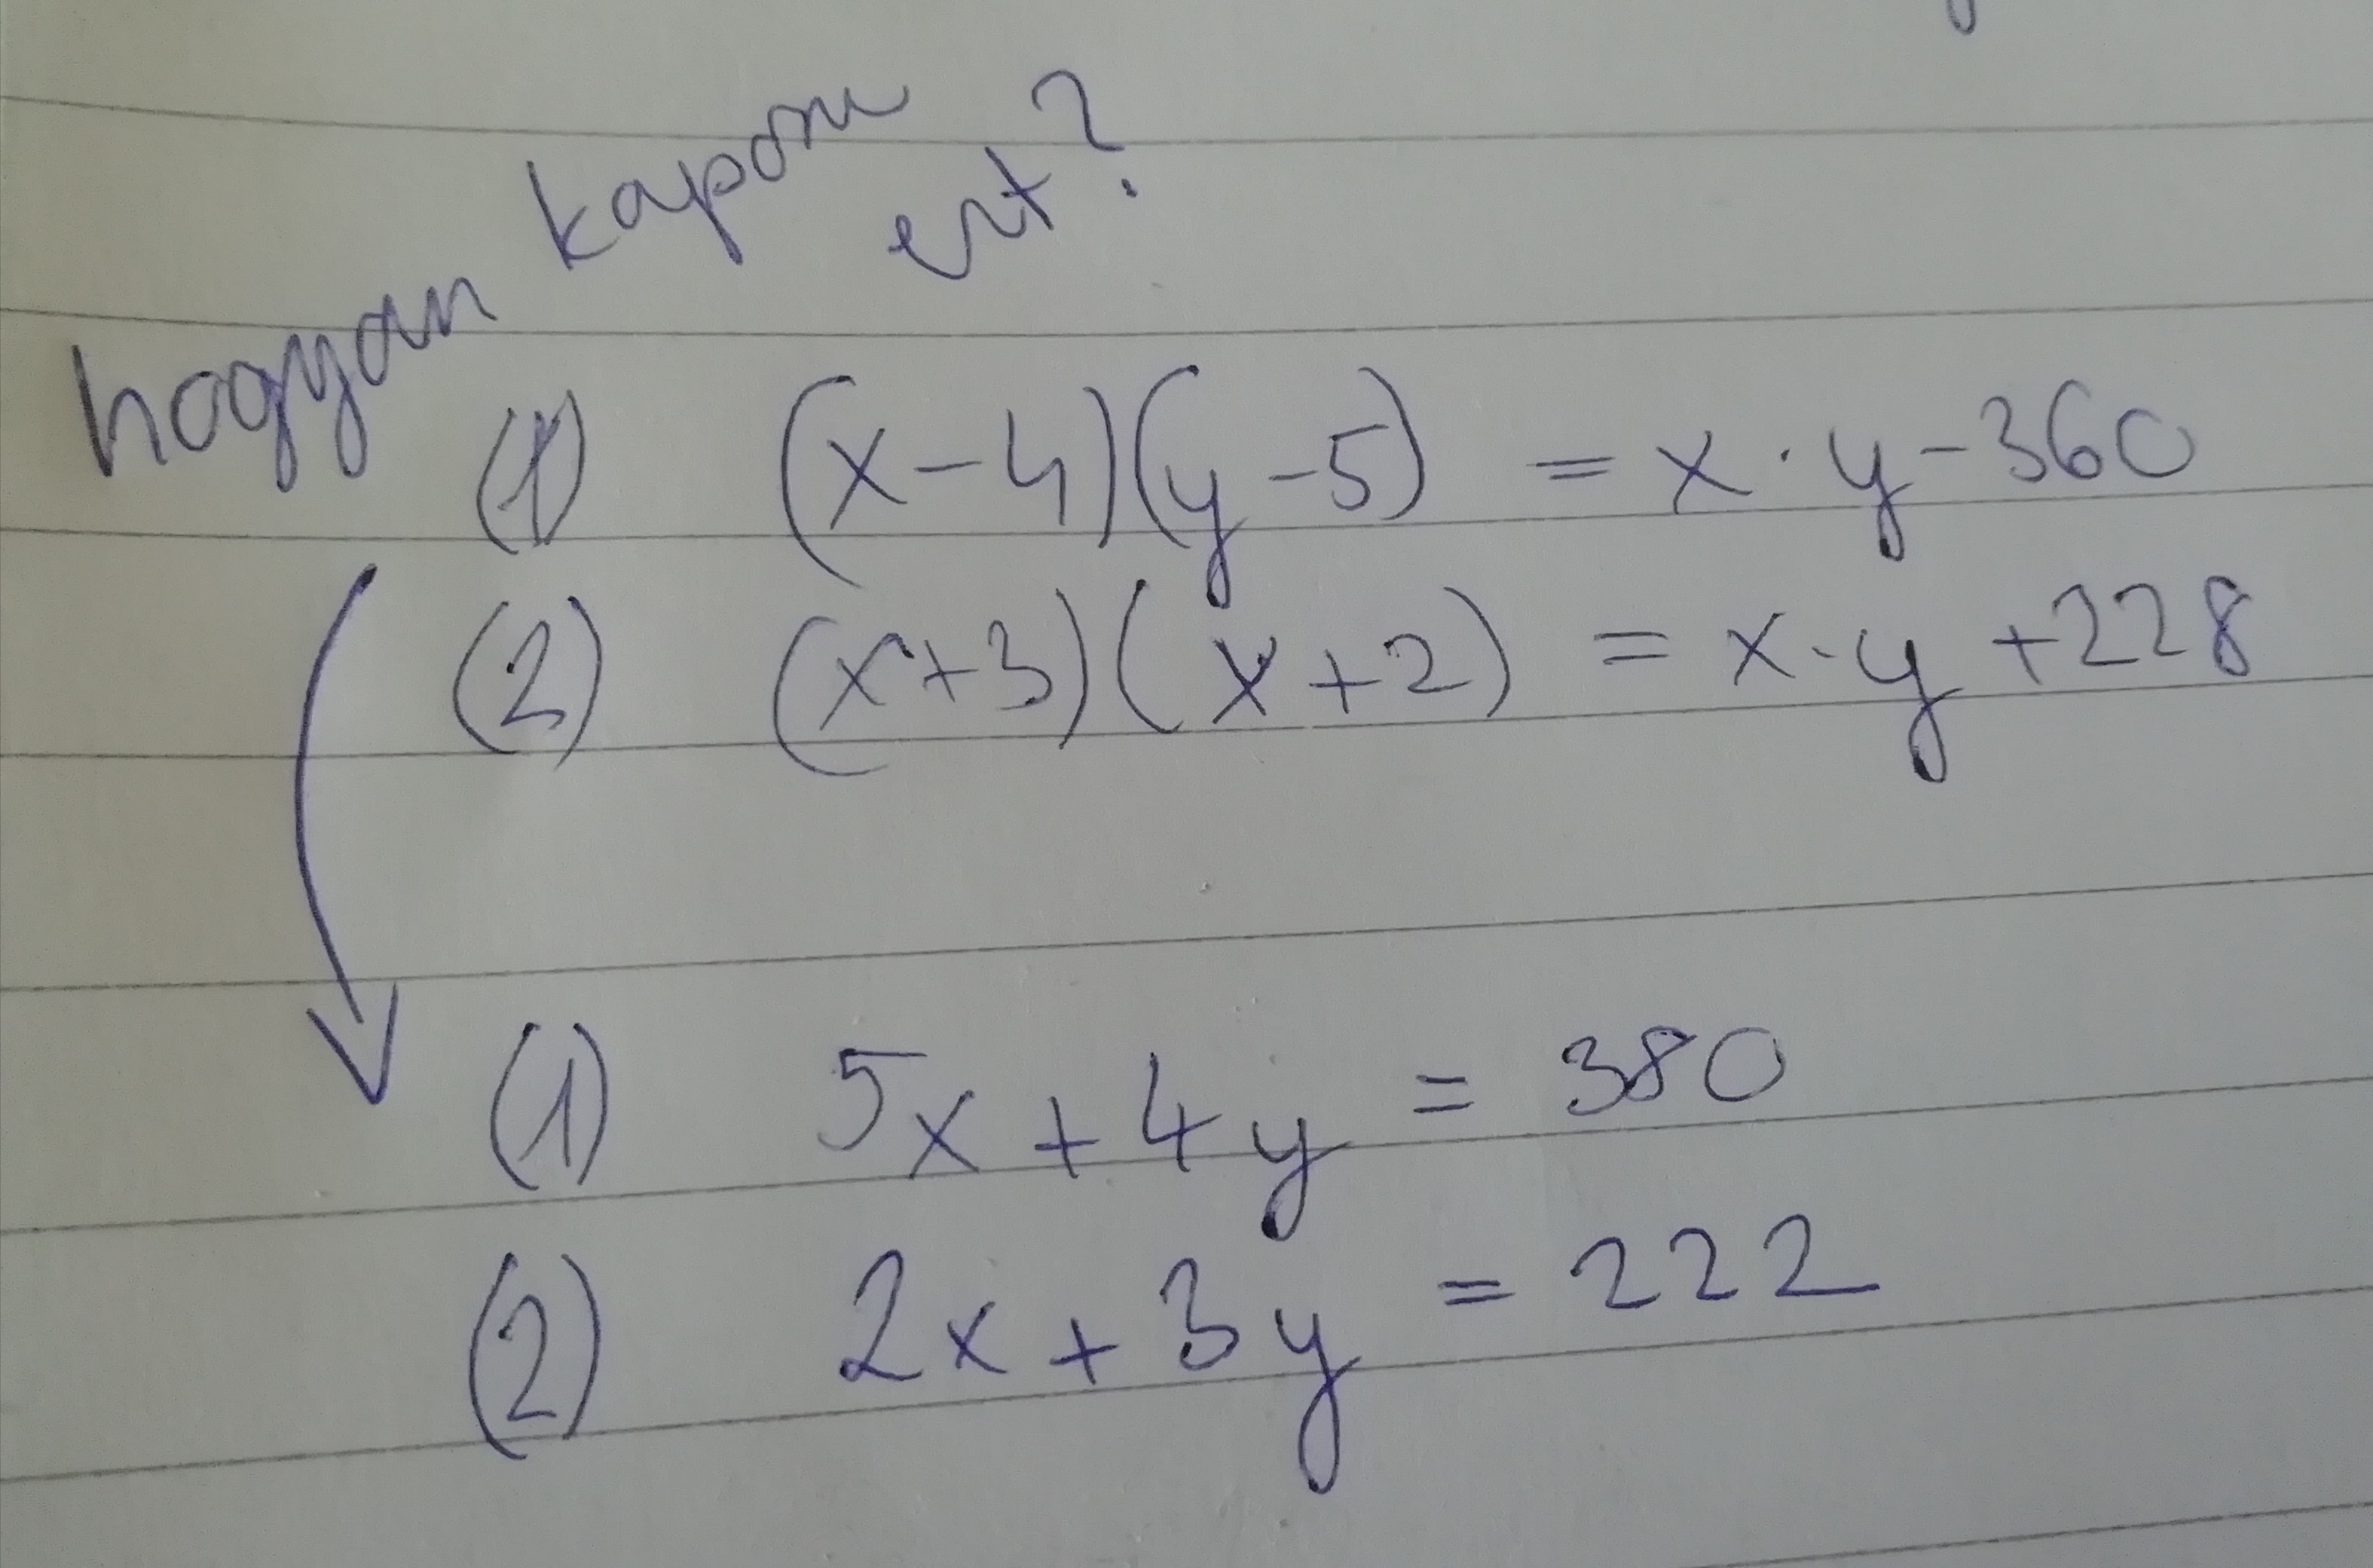 hogyan kapom
ezt?
(1) (x-4)(y-5) = x·y-360
(2) (x+3)(x+2) = x·y+228
(1) 5x+4y = 380
(2) 2x+3y = 222